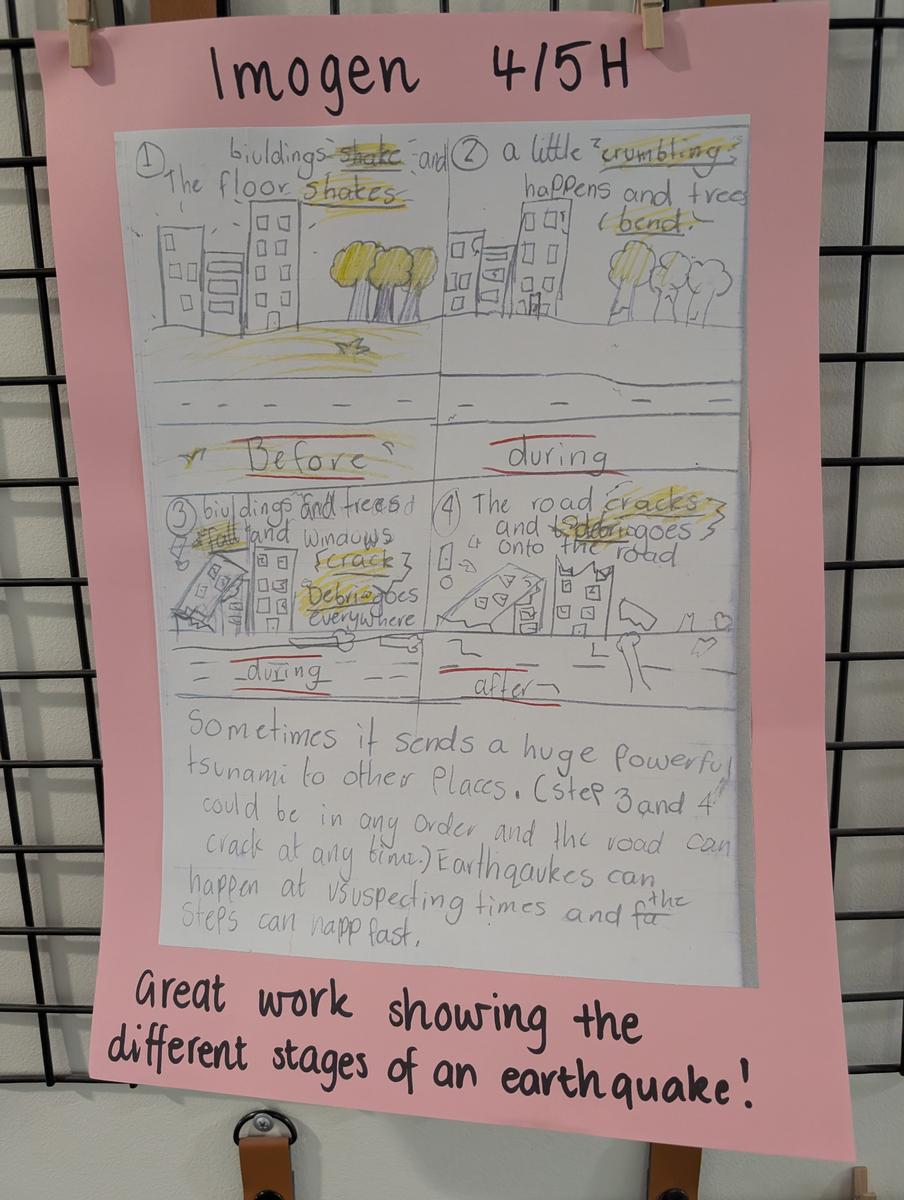 Imogen 4/5H
① biuldings shake and
The floor shakes
Before
② a little crumbling
happens and trees
bend
during
③ biuldings and trees
fall and windows
crack
Debri goes
everywhere
during
④ The road cracks
and debri goes
onto the road
after
Sometimes it sends a huge powerful
tsunami to other Places. (step 3 and 4
could be in any order and the road can
crack at any time.) Earthqaukes can
happen at ususpecting times and the
steps can happ fast.
Great work showing the
different stages of an earthquake!